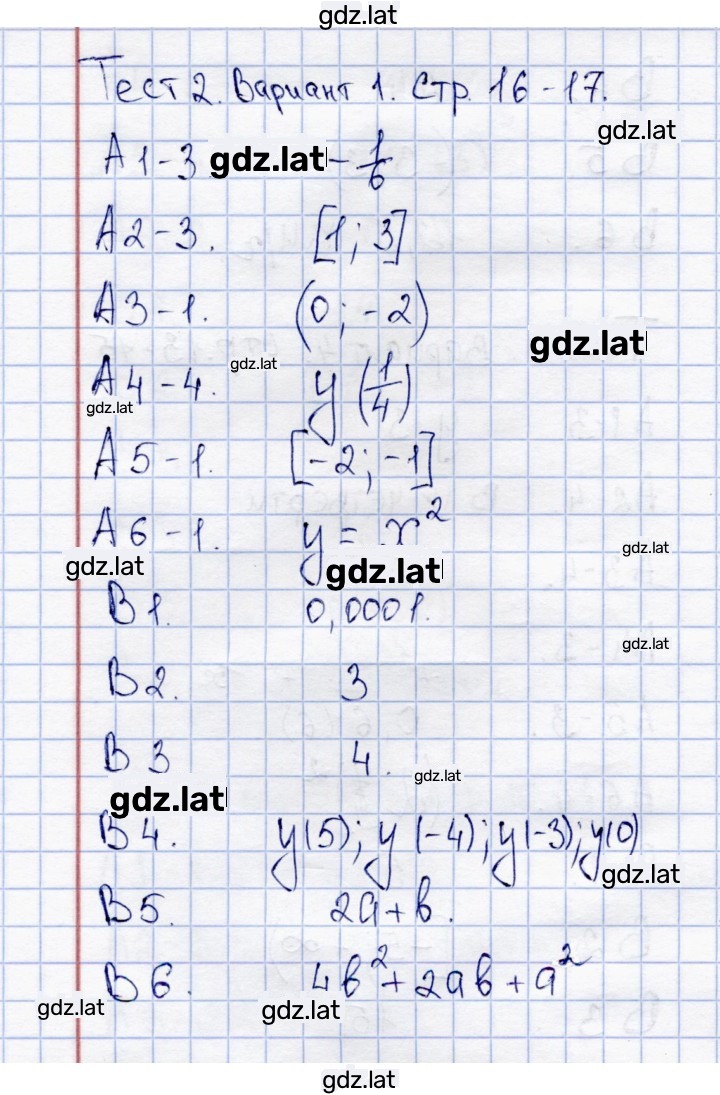 gdz.lat
Тест 2. Вариант 1. Стр. 16-17.
gdz.lat
А1-3 gdz.lat - 1/6
А2-3. [1; 3]
А3-1. (0; -2)
gdz.lat
gdz.lat
А4-4. y (1/4)
gdz.lat
А5-1. [-2; -1]
А6-1. y = x²
gdz.lat
gdz.lat gdz.lat
В1. 0,0001.
gdz.lat
В2. 3
В3 4.
gdz.lat
gdz.lat
В4. y(5); y(-4); y(-3); y(0)
gdz.lat
В5. 2a+b.
В6. 4b²+2ab+a²
gdz.lat gdz.lat
gdz.lat